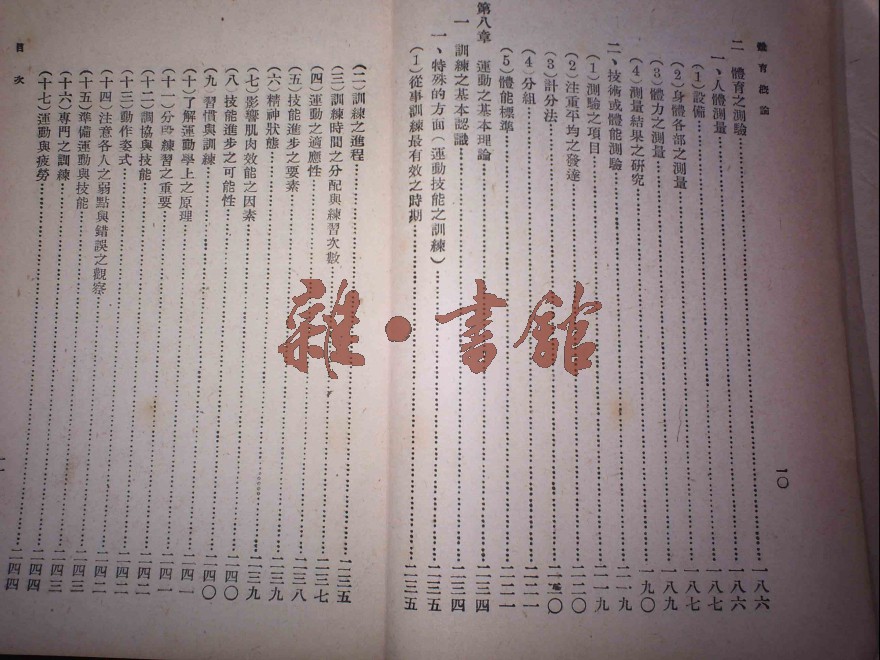 體育概論
一〇
二 體育之測驗……一八六
一、人體測量……一八六
（1）設備……一八七
（2）身體各部之測量……一八七
（3）體力之測量……一八九
（4）測量結果之研究……一九〇
二、技術或體能測驗……二一九
（1）測驗之項目……二一九
（2）注重平均之發達……二二〇
（3）計分法……二二〇
（4）分組……二二一
（5）體能標準……二二一
第八章 運動之基本理論……二三四
一 訓練之基本認識……二三四
一、特殊的方面（運動技能之訓練）……二三五
（1）從事訓練最有效之時期……二三五
（二）訓練之進程……二三五
（三）訓練時間之分配與練習次數……二三七
（四）運動之適應性……二三七
（五）技能進步之要素……二三八
（六）精神狀態……二三九
（七）影響肌肉效能之因素……二三九
（八）技能進步之可能性……二四〇
（九）習慣與訓練……二四〇
（十）了解運動學上之原理……二四一
（十一）分段練習之重要……二四二
（十二）調協與技能……二四二
（十三）動作姿式……二四二
（十四）注意各人之弱點與錯誤之觀察……二四二
（十五）準備運動與技能……二四三
（十六）專門之訓練……二四三
（十七）運動與疲勞……二四四
目次
雜·書館